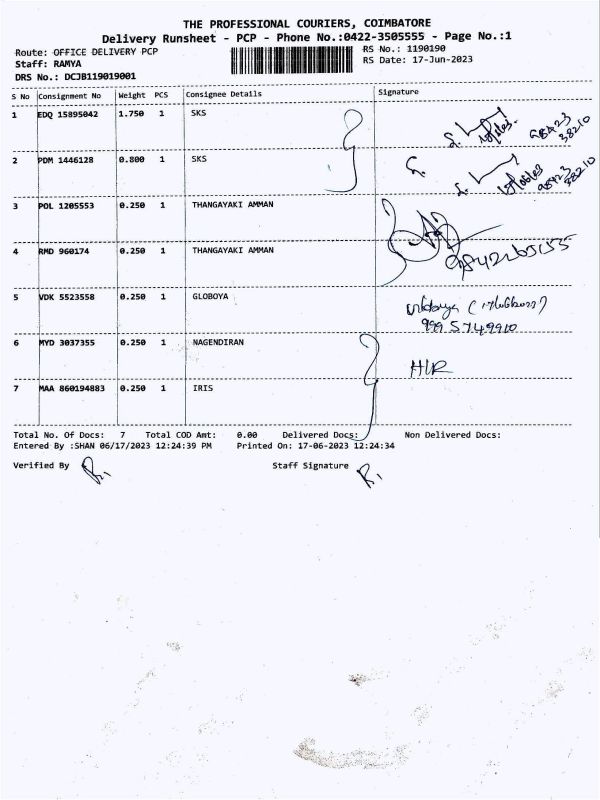 THE PROFESSIONAL COURIERS, COIMBATORE
Delivery Runsheet - PCP - Phone No.:0422-3505555 - Page No.:1
Route: OFFICE DELIVERY PCP RS No.: 1190190
Staff: RAMYA RS Date: 17-Jun-2023
DRS No.: DCJB119019001
S No Consignment No Weight PCS Consignee Details Signature
1 EDQ 15895042 1.750 1 SKS 98423 38210
2 PDM 1446128 0.800 1 SKS 98423 38210
3 POL 1205553 0.250 1 THANGAYAKI AMMAN
4 RMD 960174 0.250 1 THANGAYAKI AMMAN
5 VDK 5523558 0.250 1 GLOBOYA
6 MYD 3037355 0.250 1 NAGENDIRAN
7 MAA 860194883 0.250 1 IRIS
Total No. Of Docs: 7 Total COD Amt: 0.00 Delivered Docs: Non Delivered Docs:
Entered By :SHAN 06/17/2023 12:24:39 PM Printed On: 17-06-2023 12:24:34
Verified By Staff Signature